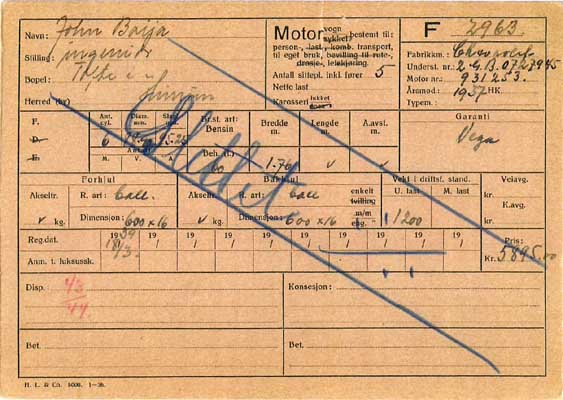 Navn: John Baija
Motor vogn sykkel bestemt til:
F 2963
Stilling: ingeniør
person-, last-, komb. transport,
til eget bruk, bevilling til rute-
drosje-, leiekjøring.
Fabrikkm.: Chevrolet
Underst. nr.: 2 G.B. 0727945
Bopel: Tofte
Antall sittepl. inkl. fører 5
Motor nr.: 931253.
Nette last
Årsmod.: 1937 HK.
Herred (by) Hurum
Karosseri lukket
Typem.:
F. D. E.
Ant. cyl. 6
Diam. mm.
Slagl. mm. 95.25
Br.st. art: Bensin
Bredde m. 1.76
Lengde m. v
A.avst. m. v
Garanti
Vega
Ant. V. A.
Beh. (l.) 60
Slettet
Forhjul
Bakhjul
Vekt i driftsf. stand.
Veiavg.
Akseltr. R. art: ball.
Akseltr. R. art: ball
enkelt tvilling
U. last M. last
kr.
K.avg.
v kg. Dimensjon: 600 x 16
v kg. Dimensjon: 600 x 16
m/m eng.
1200
kr.
Reg.dat. 19 39 19 19 19 19 19 19 19 19 19 19
18/3.
Pris:
Kr. 5895.00
Anm. t. luksussk.
Disp. 43/44.
Konsesjon:
Bet.
Bet.
H. L. & Co. 5000. 1–36.